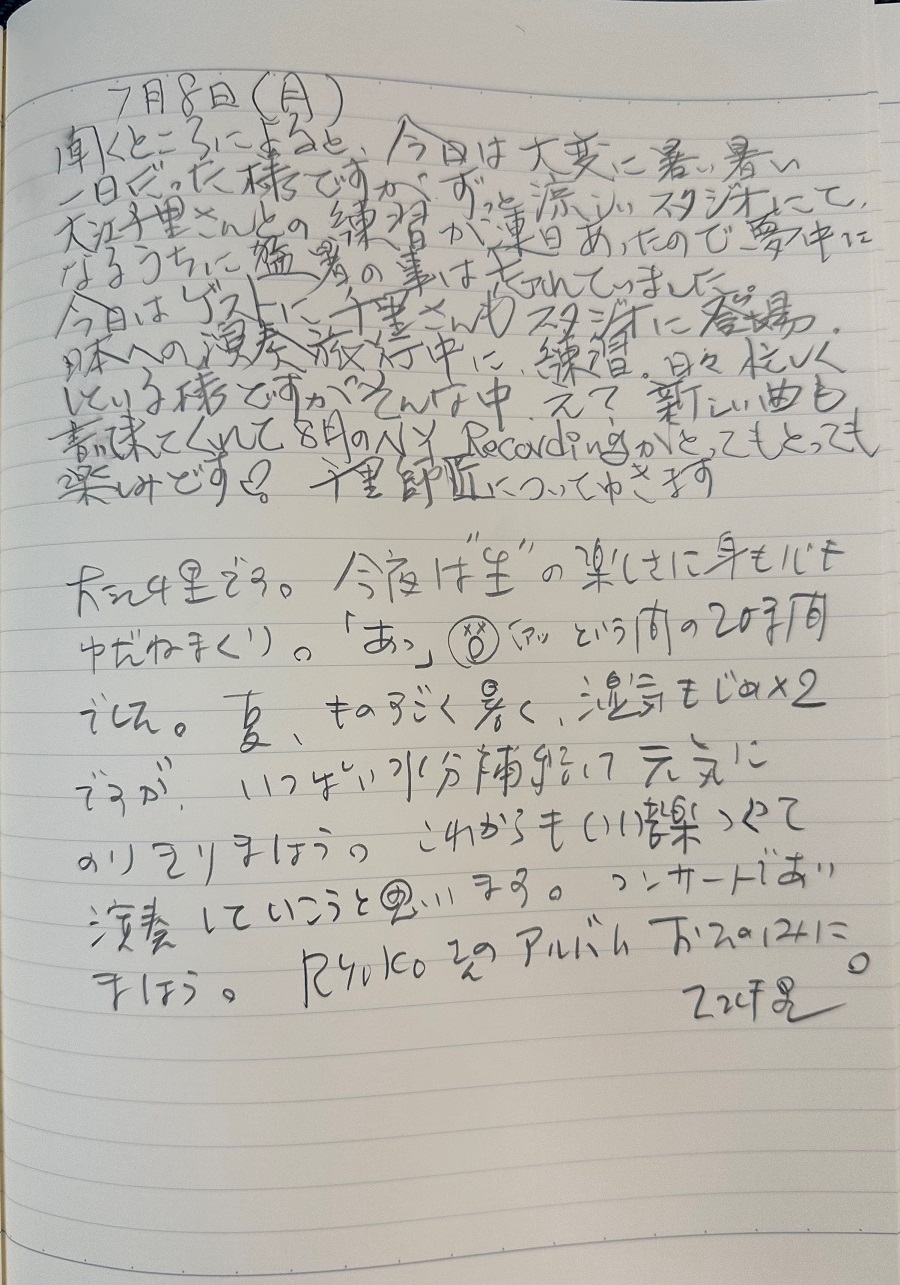 7月8日(月)
聞くところによると、今日は大変に暑い暑い
一日だった様ですが、ずっと涼しいスタジオにて、
大江千里さんとの練習が連日あったので夢中に
なるうちに猛暑の事は忘れていました
今日はゲストに千里さんもスタジオに登場。
日本への演奏旅行中に、練習。日々忙しく
している様ですが、そんな中、え?新しい曲も
書いて来てくれて8月のNY Recordingがとってもとっても
楽しみです♡ 千里師匠についてゆきます
大江千里です。今夜は"生"の楽しさに身も心も
ゆだねまくり。「あっ」(アッ という間の2時間
でした。夏、ものすごく暑く、湿気もじめ×2
ですが、いっぱい水分補給して元気に
のりきりましょう。これからもいい音楽つくって
演奏していこうと思います。コンサートであい
ましょう。Ryokoさんのアルバムおたのしみに。
大江千里